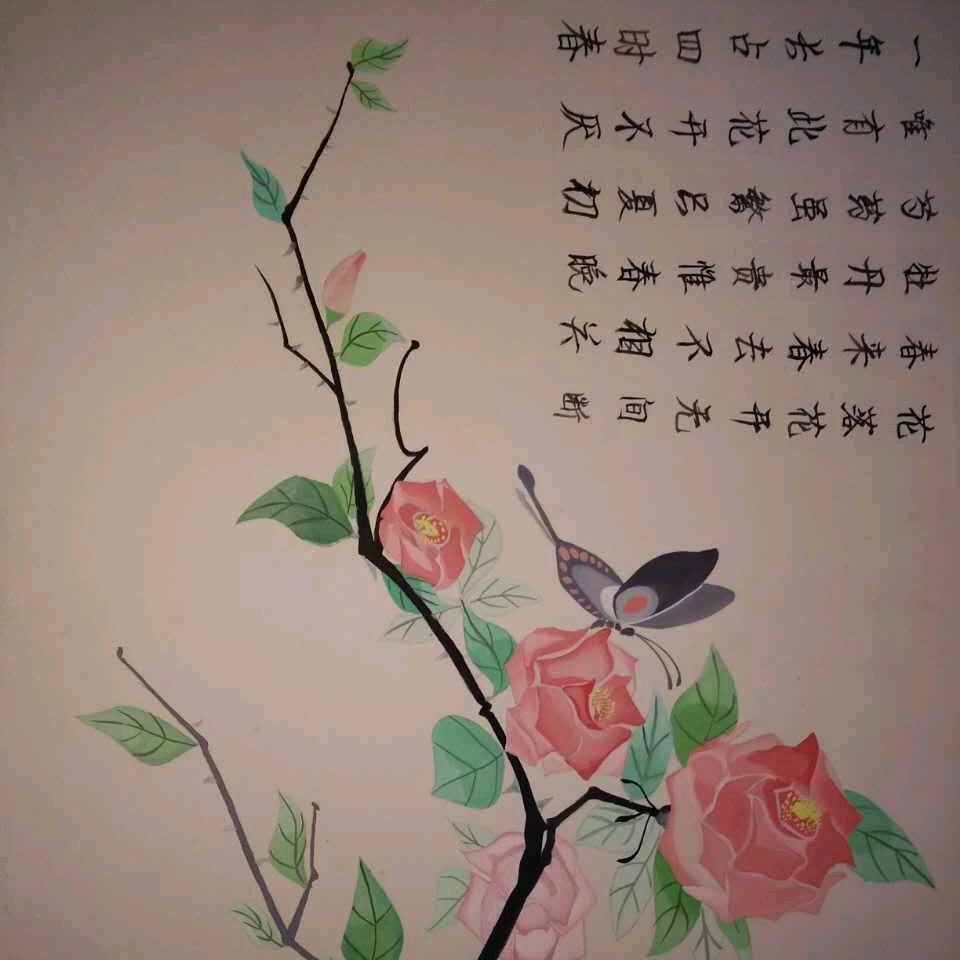 花落花开无间断
春来春去不相关
牡丹最贵惟春晚
芍药虽繁只夏初
唯有此花开不厌
一年长占四时春